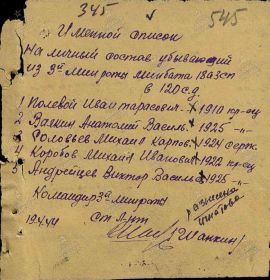 345
545
Именной список
На личный состав убывающий
из 3й минроты минбата 1803сп
в 120 с.д.
1 Полевой Иван Тарасович. 1910 кр-ец
2 Анатолий Василь. 1925 -"-
3 Соловьев Михаил Карпов. 1924 серж.
4 Коробов Михаил Иванович 1922 кр-ец
5 Андрейцев Виктор Василь 1925 -"-
Командир 3й минроты
19.4.44 ст л-нт